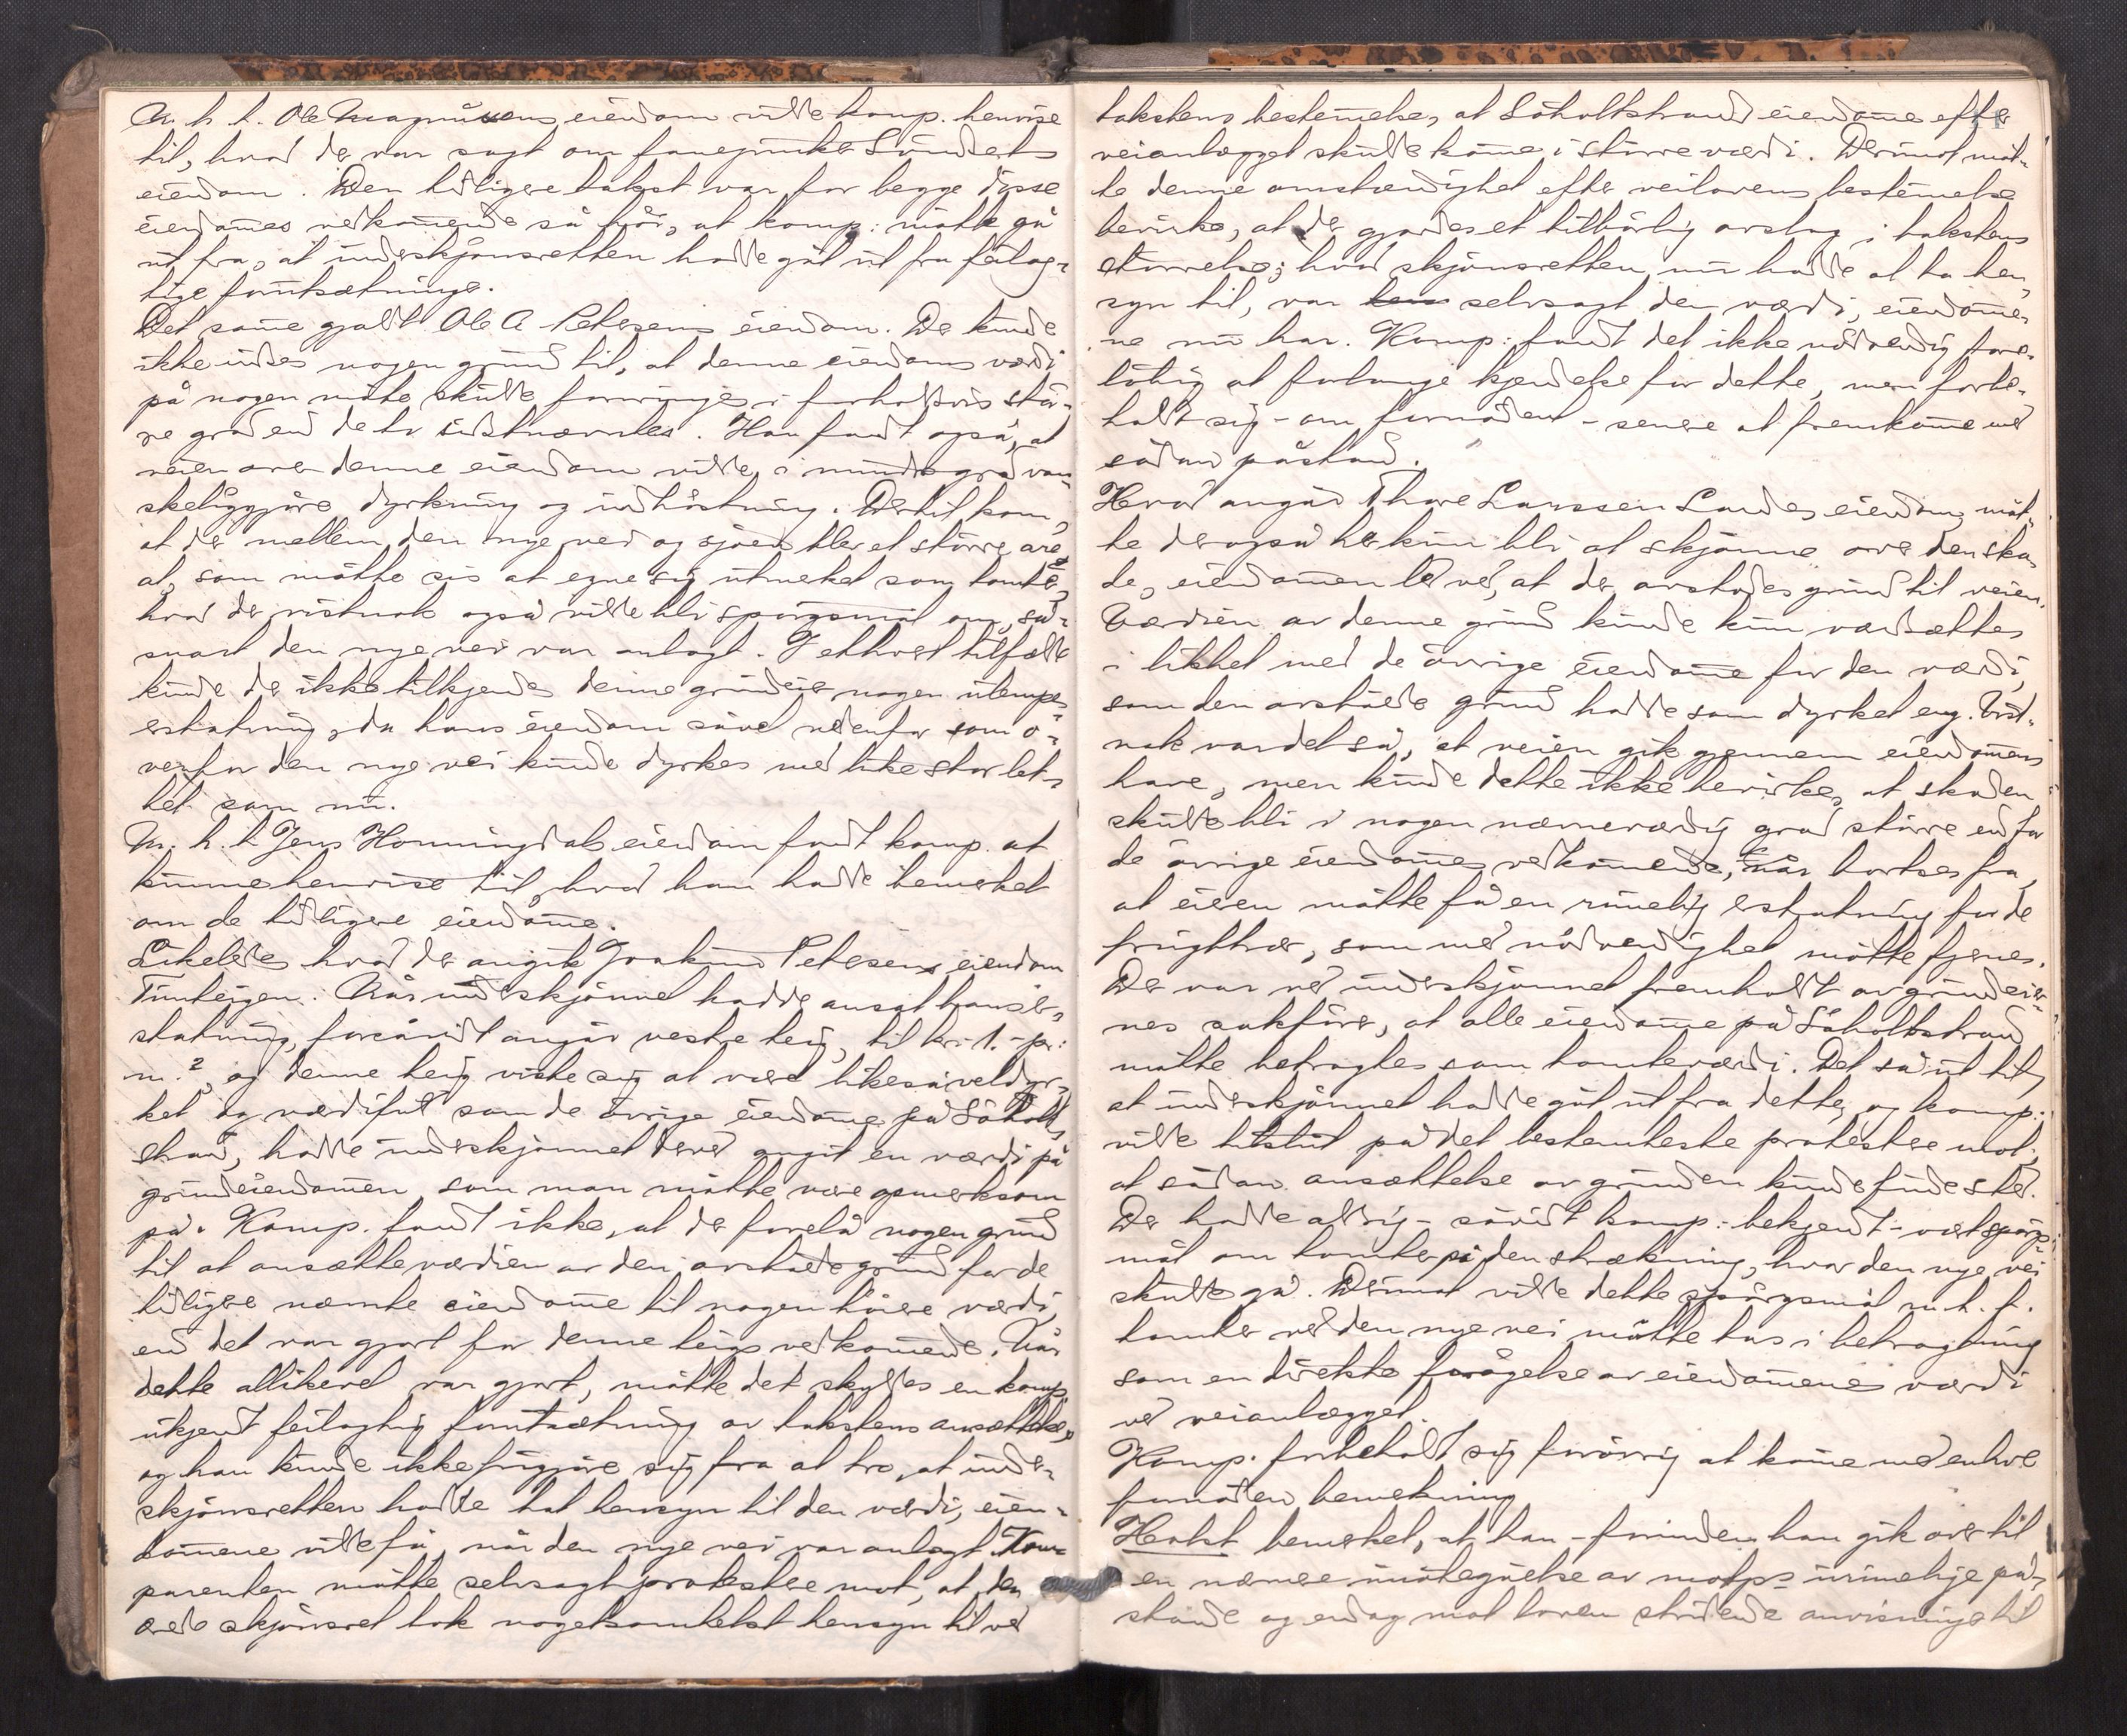 M. h. t. Ole Magnussens eiendom vilde komp. henvise
til, hvad der var sagt om fanejunker Sundsets
eiendom. Den tidligere takst var for begge disse
eiendommes vedkommende så høi, at komp: måtte gå
ut fra, at underskjønsretten hadde gåt ut fra feilag-
tige forutsætninger.
Det samme gjaldt Ole A Petersens eiendom. Der kunde
ikke indses nogen grund til, at denne eiendoms værdi
på nogen måte skulde forringes i forholdsvis stør-
re grad end de to sidstnævntes. Han fandt også, at
veien over denne eiendom vilde i mindre grad van-
skeliggjøre dyrkning og indhøstning. Dertil kom,
at der mellem den nye vei og sjøen blev et større are-
al, som måtte sies at egne sig utmerket som tomter,
hvad der vistnok også vilde bli spørgsmål om, så-
snart den nye vei var anlagt. I ethvert tilfælde
kunde der ikke tilkjendes denne grundeier nogen ulempes-
erstatning, da hans eiendom såvel nedenfor som o-
venfor den nye vei kunde dyrkes med like stor let-
het som nu.
M. h. t. Jens Honningdals eiendom fandt komp. at
kunne henvise til, hvad han hadde bemerket
om de tidligere eiendomme.
Likeledes hvad der angik Joakim Petersens eiendom
Tunteigen. Når underskjønnet hadde ansat hans er-
statning, forsåvidt angår vestre teig, til kr. 1.- pr:
m.², og denne teig viste sig at være likeså veldyr-
ket og værdifuld som de øvrige eiendomme på Søholt-
strand, hadde underskjønnet derved angit en værdi på
grundeiendommen som man måtte være opmerksom
på. Komp. fandt ikke, at der forelå nogen grund
til at ansætte værdien av den avståtte grund for de
tidligere nævnte eiendomme til nogen høiere værdi,
end det var gjort for denne teigs vedkommende. Når
dette allikevel var gjort, måtte det skyldes en komp.
ukjent feilagtig forutsætning av takstens ansættelse,
og han kunde ikke frigjøre sig fra at tro, at under-
skjønsretten hadde tat hensyn til den værdi, eien-
dommene vilde få, når den nye vei var anlagt. Kom-
parenten måtte selvsagt protestere mot, at den
ærede skjønsret tok nogetsomhelst hensyn til ved
takstens bestemmelse, at Søholtstrand eiendomme efter
veianlægget skulde komme i større værdi. Derimot måt-
te denne omstændighet efter veilovens bestemmelse
bevirke, at der gjordes et tilbørlig avslag i takstens
størrelse; hvad skjønsretten nu hadde at ta hen-
syn til, var selvsagt den værdi, eiendomme-
ne nu har. Komp: fandt det ikke nødvendig fore-
løbig at forlange kjendelse for dette, men forbe-
holdt sig - om fornødent - senere at fremkomme med
sådan påstand.
Hvad angår Thore Larssen Landes eiendom, måt-
te der også her kun bli at skjønne over den ska-
de, eiendommen led ved, at der avstodes grund til veien.
Værdien av denne grund kunde kun værdsættes
i likhet med de øvrige eiendomme for den værdi,
som den avståtte grund hadde som dyrket eng. Vist-
nok var det så, at veien gik gjennem eiendommens
have, men kunde dette ikke bevirke, at skaden
skulde bli i nogen nævneværdig grad større end for
de øvrige eiendommes vedkommende, når bortses fra,
at eieren måtte få en rimelig erstatning for de
frugttrær, som med nødvendighet måtte fjernes.
Der var ved underskjønnet fremholdt av grundeier-
nes sakfører, at alle eiendomme på Søholtstrand
måtte betragtes som tomteværdi. Det så ut til,
at underskjønnet hadde gåt ut fra dette, og komp:
vilde tilslut på det bestemteste protestere mot,
at sådan ansættelse av grunden kunde finde sted.
Der hadde aldrig - såvidt komp: bekjendt - vært spørgs-
mål om tomter på den strækning, hvor den nye vei
skulde gå. Derimot vilde dette spørgsmål m. h. t.
tomter ved den nye vei måtte tas i betragtning
som en direkte forøgelse av eiendommenes værdi
ved veianlægget.
Komp. forbeholdt sig forøvrig at komme med enhver
fornøden bemerkning
Holst bemerket, at han - forinden han gik over til
en nærmere imøtegåelse av motp.s urimelige på-
stande og endog mot loven stridende anvisninger til